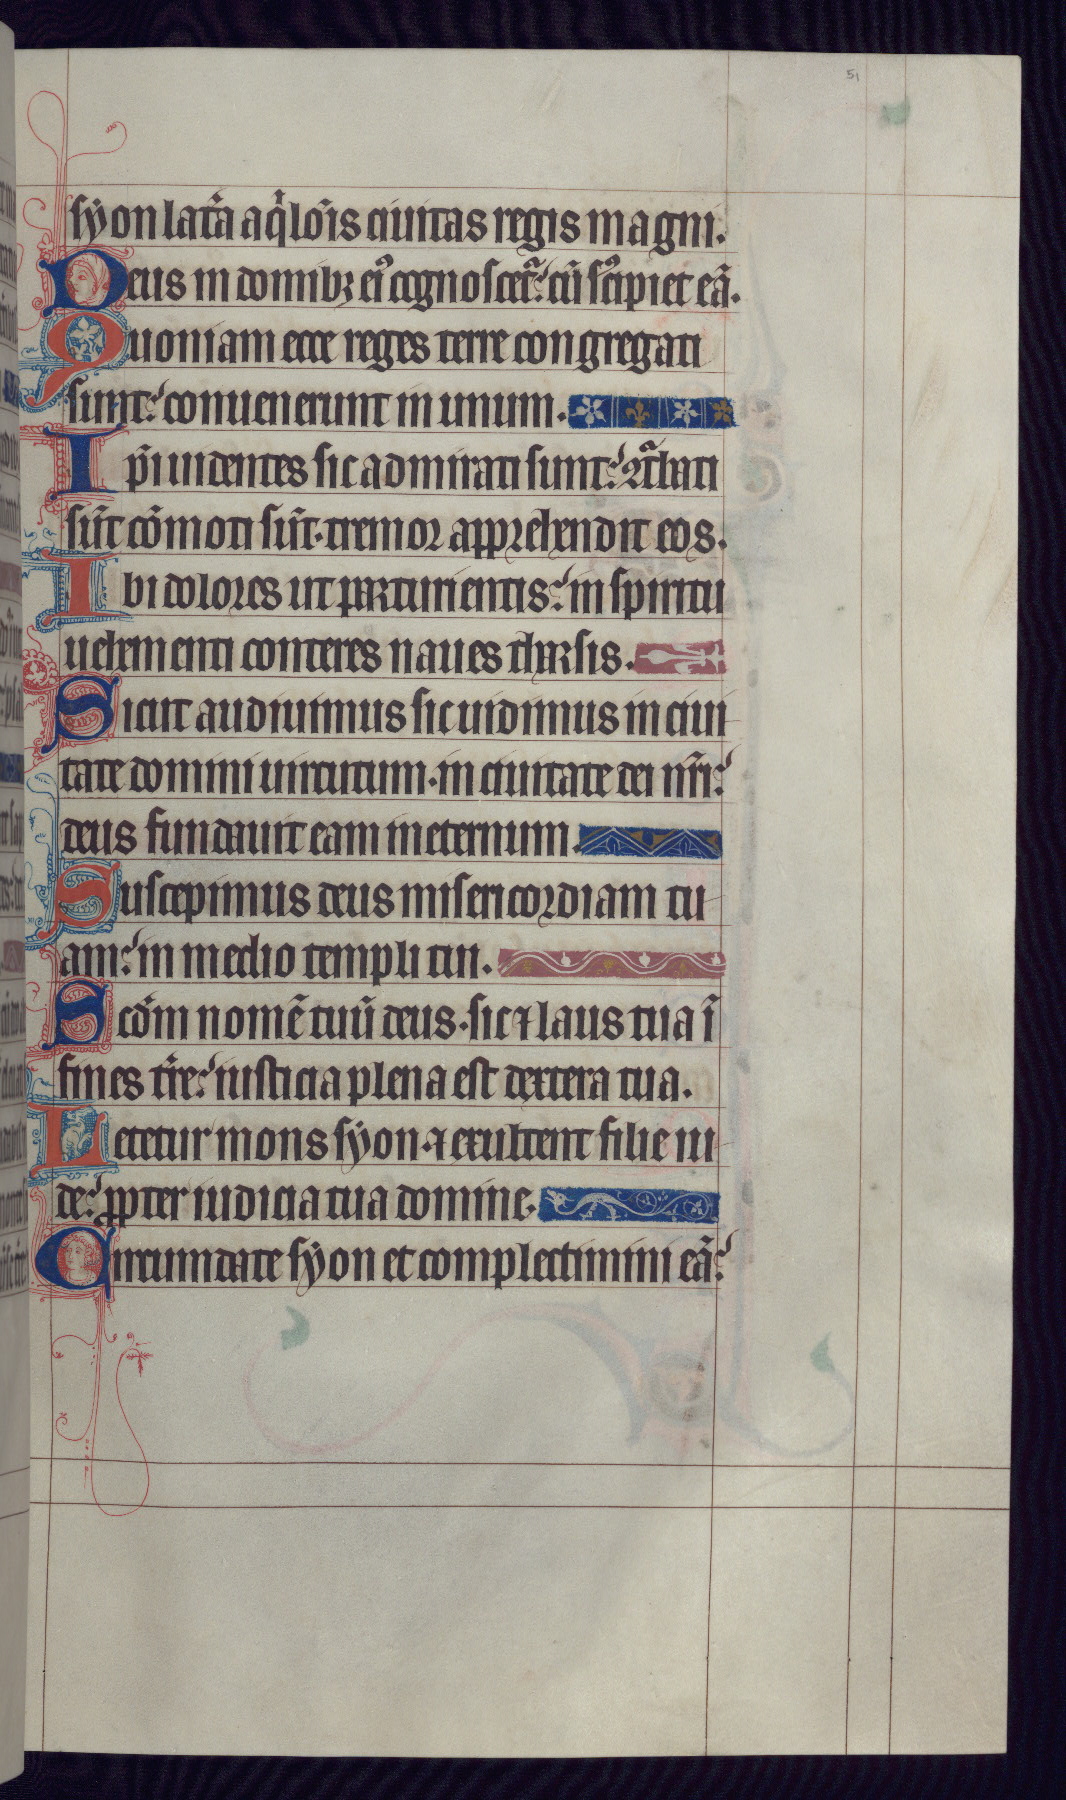 51
syon lat̃a aq̃lois ciuitas regis magni.
Deus in domibꝫ eiꝰ cognoscet᷑: cũ scͥpiet eã.
Quoniam ecce reges terre congregati
sunt: conuenerunt in unum.
Ip̃i uidentes sic admirati sunt: ɔt᷑bati
sũt cõmoti sũt. tremor apprehendit eos.
Ibi dolores ut parturientis: in spiritu
uehementi conteres naues tharsis.
Sicut audiuimus sic uidimus in ciui
tate domini uirtutum. in ciuitate dei nr̃i:
deus fundauit eam in eternum.
Suscepimus deus misericordiam tu
am: in medio templi tui.
Scd̃m nomẽ tuũ deus. sic ⁊ laus tua ĩ
fines tr̃e: iusticia plena est dextera tua.
Letetur mons syon ⁊ exultent filie iu
de: ꝓpter iudicia tua domine.
Circumdate syon et complectimini eã: